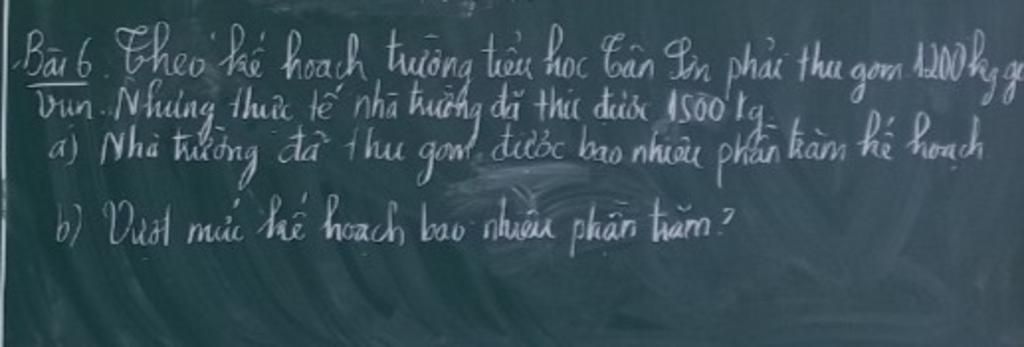 Bài 6. Theo kế hoạch trường tiểu học Tân Sơn phải thu gom 1200 kg
vụn. Nhưng thực tế nhà trường đã thu được 1500 kg
a) Nhà trường đã thu gom được bao nhiêu phần trăm kế hoạch
b) Vượt mức kế hoạch bao nhiêu phần trăm?